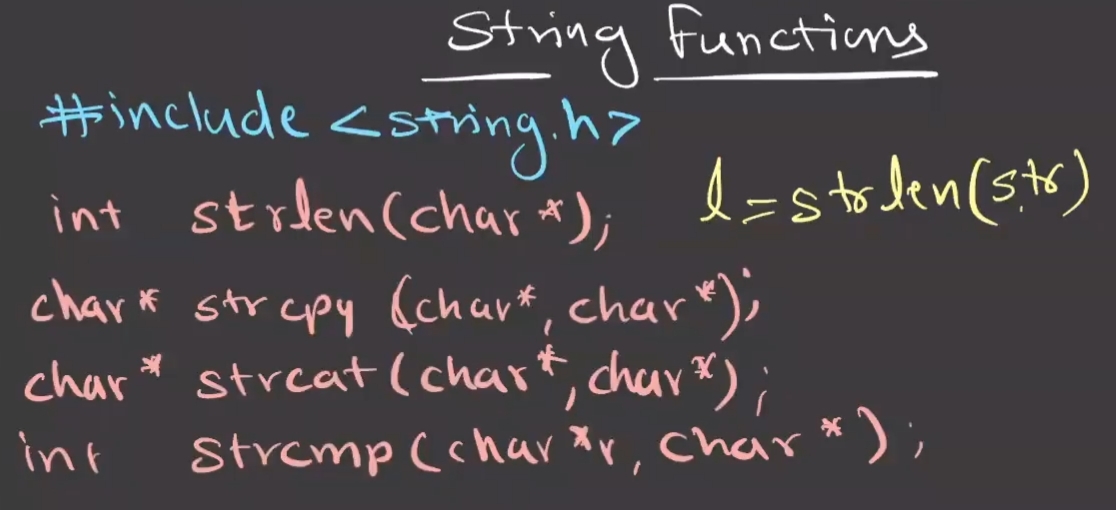 String Functions
#include <string.h>
int strlen(char *);
l=strlen(str)
char* strcpy (char*, char*);
char* strcat (char*, char*);
int strcmp (char *r, char *);